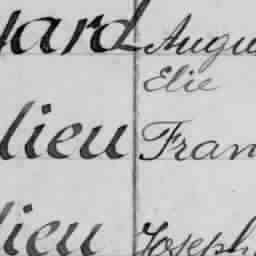 yard Augu
Elie
lieu Fran
lieu Joseph